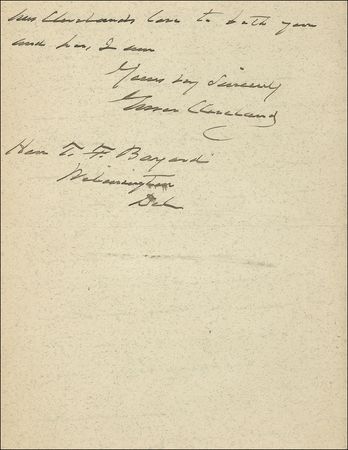 Mrs Clevelands love to both you
and her, I am
Yours very Sincerely
Grover Cleveland
Hon T. F. Bayard
Wilmington
Del